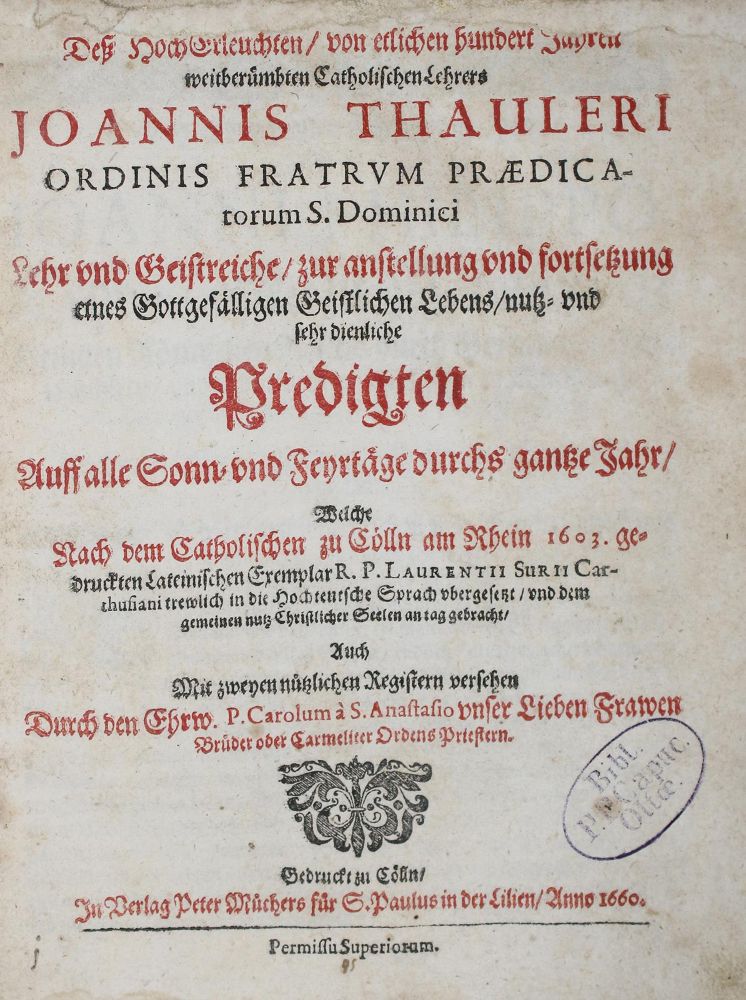 Deß HochErleuchten / von etlichen hundert Jahren
weitberümbten Catholischen Lehrers
JOANNIS THAULERI
ORDINIS FRATRVM PRÆDICA-
torum S. Dominici
Lehr vnd Geistreiche / zur anstellung vnd fortsetzung
eines Gottgefälligen Geistlichen Lebens / nutz- vnd
sehr dienliche
Predigten
Auff alle Sonn- vnd Feyrtäge durchs gantze Jahr /
Welche
Nach dem Catholischen zu Cölln am Rhein 1603. ge-
druckten Lateinischen Exemplar R. P. LAURENTII SURII Car-
thusiani trewlich in die Hochteutsche Sprach vbergesetzt / vnd dem
gemeinen nutz Christlicher Seelen an tag gebracht /
Auch
Mit zweyen nützlichen Registern versehen
Durch den Ehrw. P. Carolum à S. Anastasio vnser Lieben Frawen
Brüder oder Carmeliter Ordens Priestern.
Bibl.
P.P. Capuc.
Ottæ.
Gedruckt zu Cölln /
In Verlag Peter Müchers für S. Paulus in der Lilien / Anno 1660.
Permissu Superiorum.